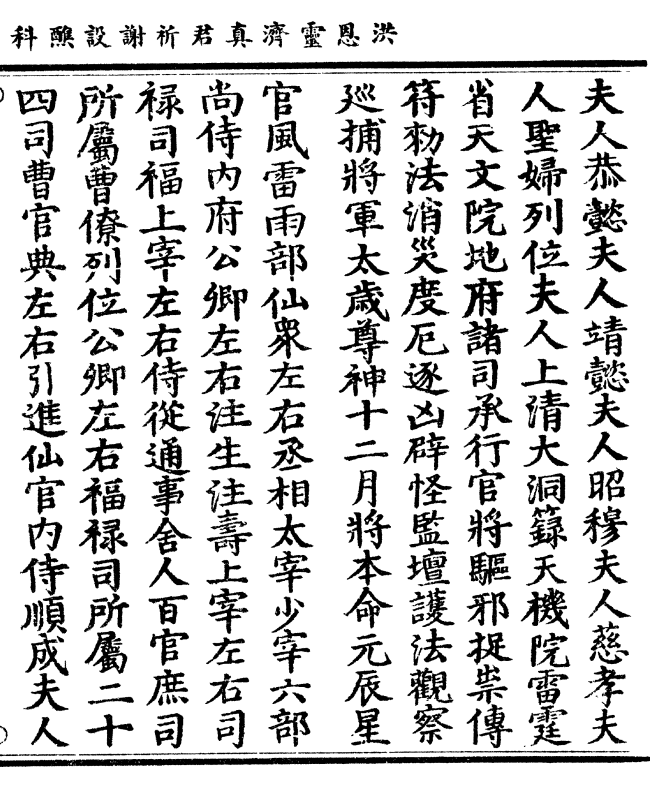 洪恩靈濟真君祈謝設醮科
夫人恭懿夫人靖懿夫人昭穆夫人慈孝夫
人聖婦列位夫人上清大洞籙天機院雷霆
省天文院地府諸司承行官將驅邪捉祟傳
符勑法消災度厄逐凶辟怪監壇護法觀察
廵捕將軍太歲尊神十二月將本命元辰星
官風雷雨部仙衆左右丞相太宰少宰六部
尚侍內府公卿左右注生注壽上宰左右司
祿司福上宰左右侍從通事舍人百官庶司
所屬曹僚列位公卿左右福祿司所屬二十
四司曹官典左右引進仙官內侍順成夫人